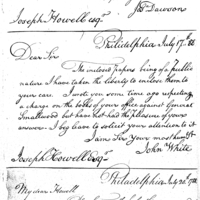 Jno Dawson
Joseph Howell esqr.
Philadelphia July 17th 88
Dear Sir
The inclosed papers being of a public
nature I have taken the liberty to enclose them to
your care. I wrote you some time ago respecting
a charge on the books of your office against General
Smallwood but have not had the pleasure of your
answer. I beg leave to solicit your attention to it
I am Sir Your most hmble
John White
Joseph Howell Esqr
Philadelphia July 20th 1788
My dear Howell